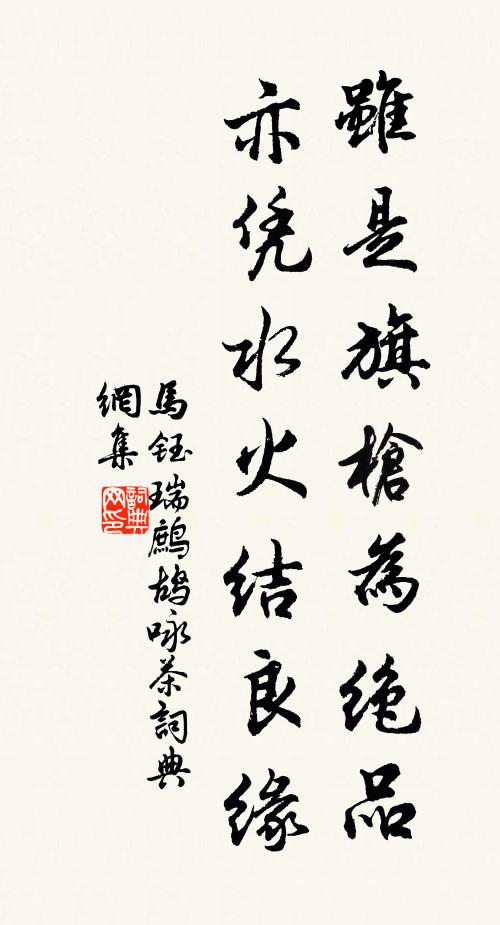 雖是旗槍為绝品
亦凭水火结良缘
馬鈺瑞鷓鴣咏茶詞典
網集
詞典
网印